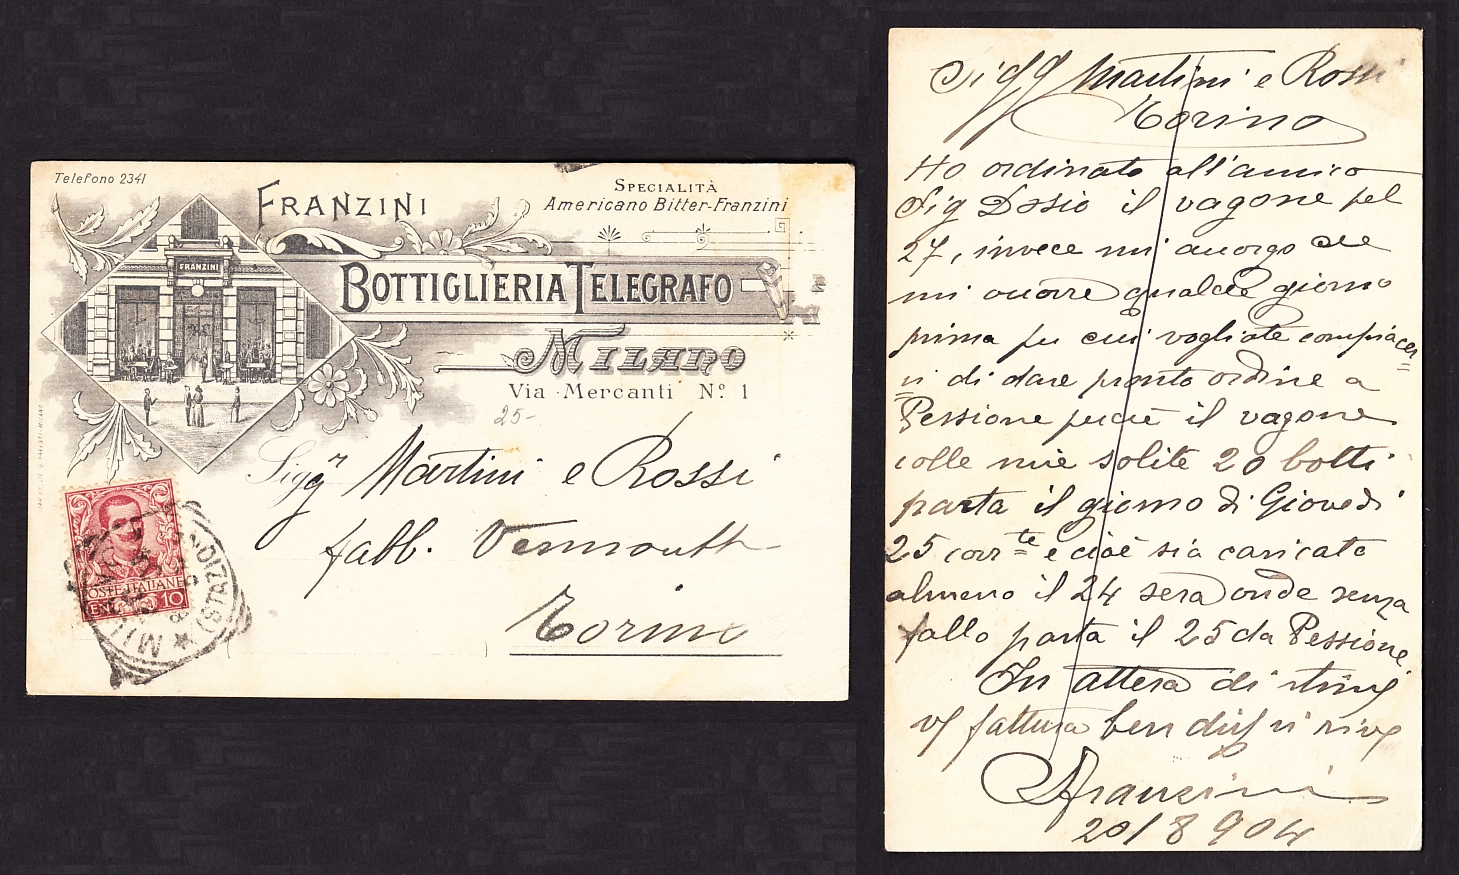 Telefono 2341
FRANZINI
SPECIALITÀ
Americano Bitter-Franzini
FRANZINI
BOTTIGLIERIA TELEGRAFO
MILANO
Via Mercanti Nº. 1
25-
Sigg.ri Martini e Rossi
fabb. Vermouth
Torino
POSTE ITALIANE
CENT. 10
MILANO (STAZIONE)
Sigg Martini e Rossi
Torino
Ho ordinato all'amico
Sig Dosio il vagone pel
27, invece mi accorgo che
mi occorre qualche giorno
prima per cui vogliate compiacer=
vi di dare pronto ordine a
Pessione perchè il vagone
colle mie solite 20 botti
parta il giorno di Giovedì
25 corr.te e cioè sia caricato
almeno il 24 sera onde senza
fallo parta il 25 da Pessione
In attesa di
v/ fattura ben vi
Franzini
20/8 904